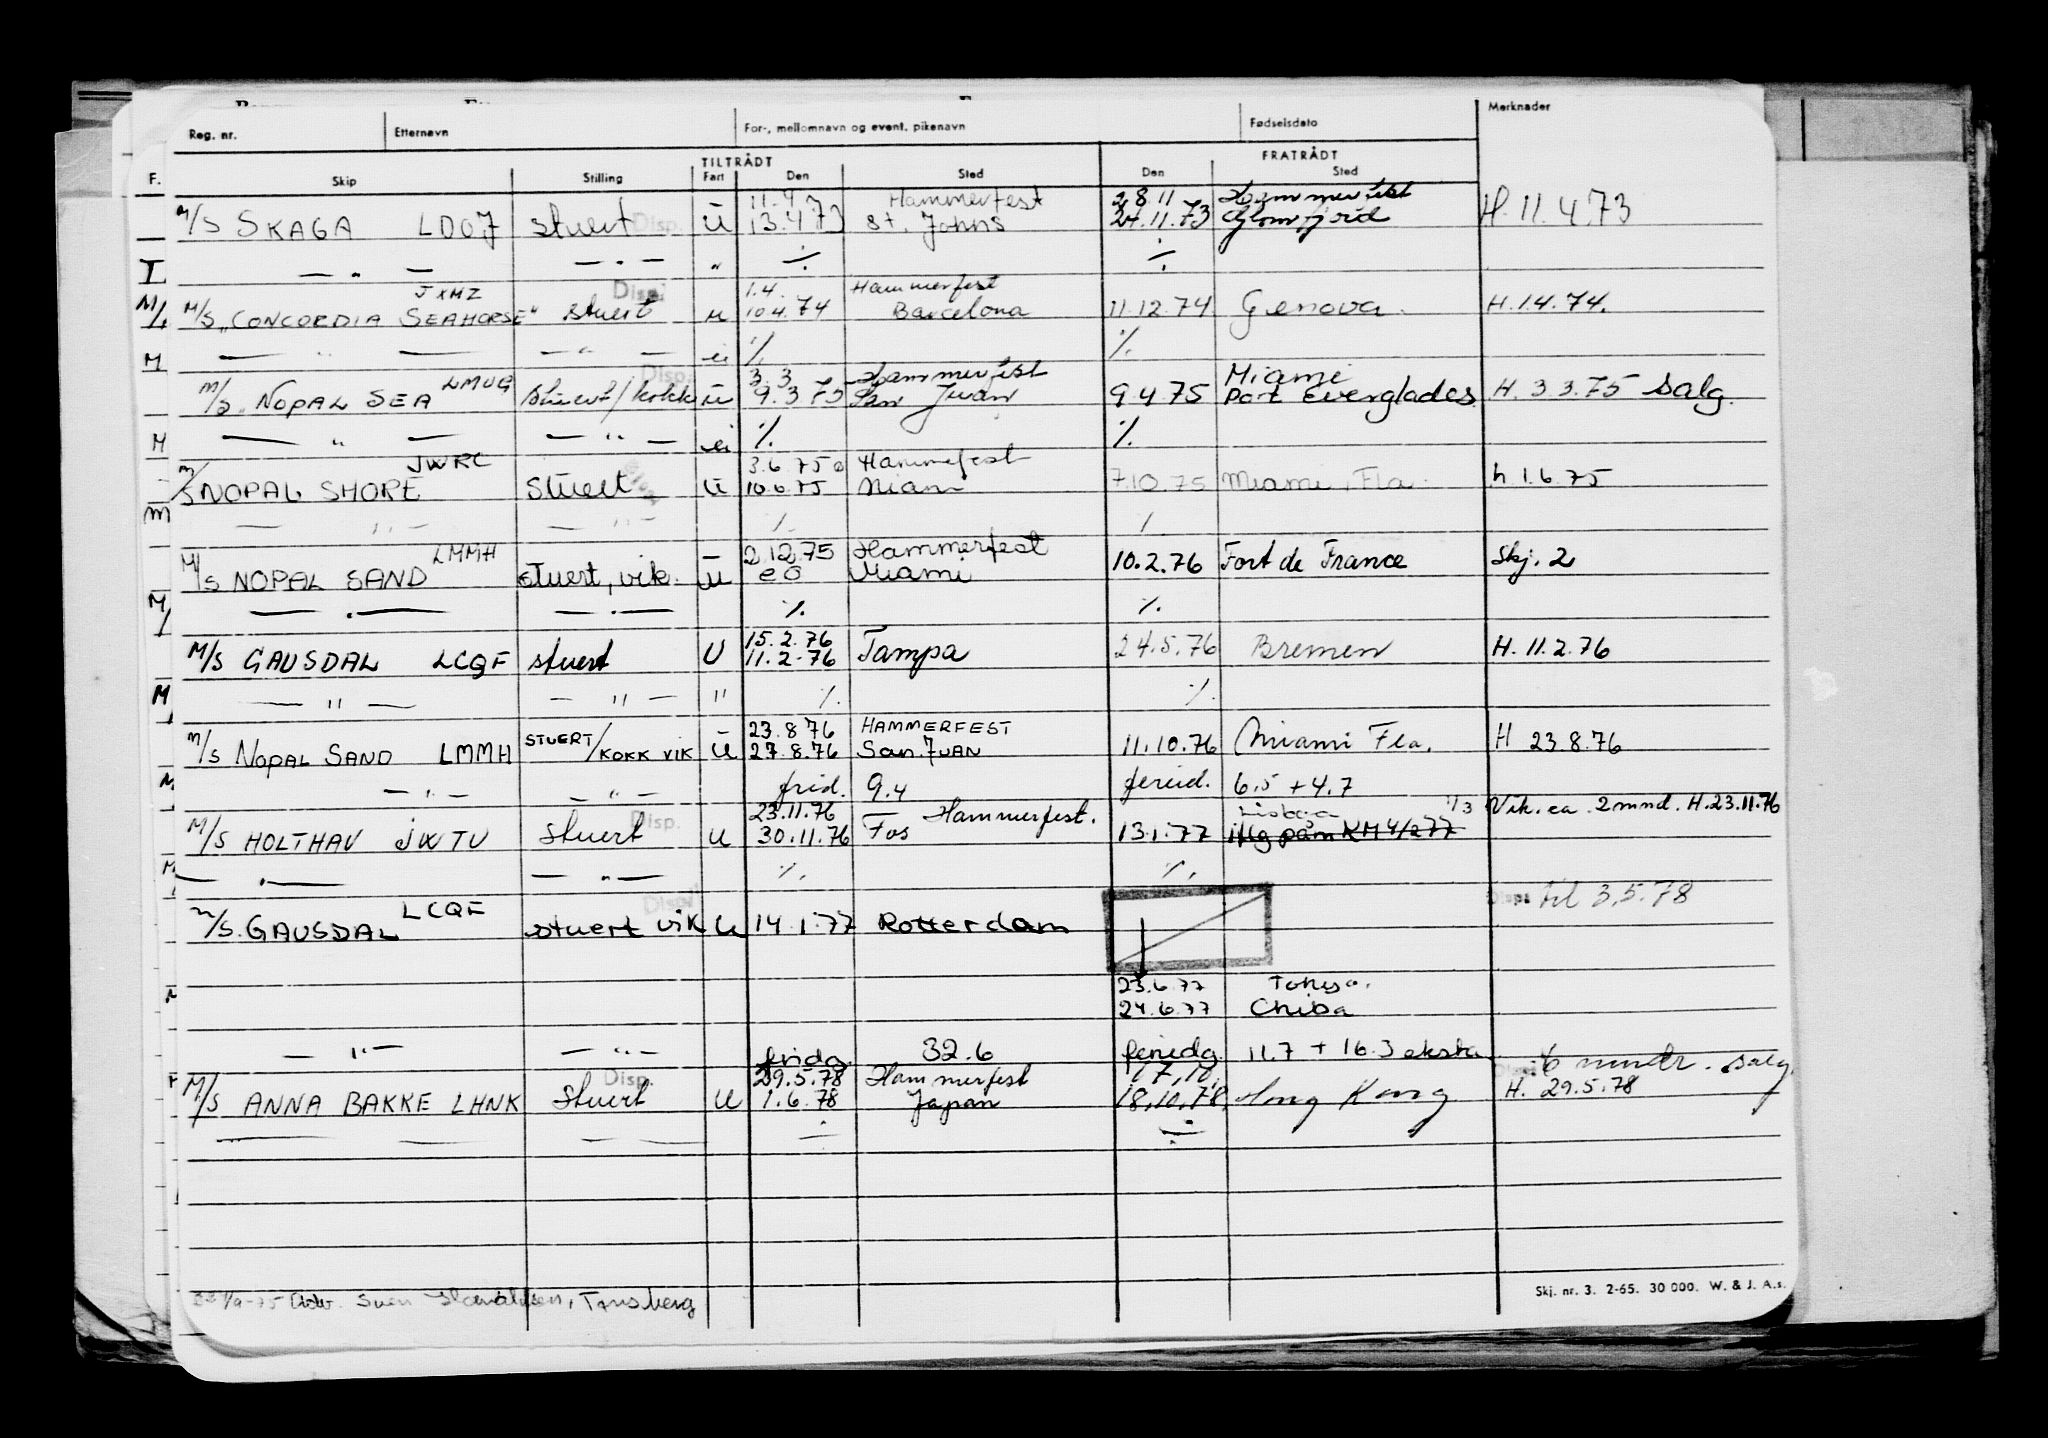 Reg. nr. Etternavn For-, mellomnavn og event. pikenavn Fødselsdato Merknader
TILTRÅDT FRATRÅDT
F. Skip Stilling Fart Den Sted Den Sted
11.4 Hammerfest 28.11 Hammerfest
M/S SKAGA LDOJ stuert Disp. U 13.4.73 St. Johns 24.11.73 Glomfjord H. 11.4.73
— " — — " — " ÷ ÷
JXMZ Disp. 1.4. Hammerfest
M/S "CONCORDIA SEAHORSE" stuert u 10.4.74 Barcelona 11.12.74 Genova. H. 1.4.74.
— " — — " — ei ÷ ÷
LMUG Disp. 3.3 Hammerfest Miami
M/S "NOPAL SEA stuert/kokk u 9.3.75 San Juan 9.4.75 Port Everglades H. 3.3.75 Salg.
— " — — " — ei ÷ ÷
JWRC 3.6.75 Hammefest
M/S NOPAL SHORE Stuert U 10.6.75 Miami 7.10.75 Miami, Fla. h 1.6.75
— " — — " — ÷ ÷
LMMH 2.12.75 Hammerfest
M/S NOPAL SAND stuert, vik. u Miami 10.2.76 Fort de France Skj. 2
— " — — " — ÷ ÷
15.2.76
M/S GAUSDAL LCQF stuert U 11.2.76 Tampa 24.5.76 Bremen H. 11.2.76
— " — — " — " ÷ ÷
23.8.76 HAMMERFEST
M/S NOPAL SAND LMMH STUERT/KOKK VIK U 27.8.76 San JUAN 11.10.76 Miami Fla. H 23.8.76
— " — — " — frid. 9.4 feriid. 6.5 + 4.7
Disp. 23.11.76 Hammerfest. 1/3 Vik. ca. 2 mnd. H. 23.11.76
M/S HOLTHAV JWTU Stuert U 30.11.76 Fos 13.1.77
— " — — " — ÷ ÷
LCQF Disp. Disp: til 3.5.78
M/S. GAUSDAL stuert vik U 14.1.77 Rotterdam
23.6.77
24.6.77 Chiba
— " — — " — fridg. 32.6 feriedg. 11.7 + 16.3 eksta
Disp. 29.5.78 Hammerfest 17.10. Disp: 6 mndr. salg.
M/S ANNA BAKKE LHNK Stuert U 1.6.78 Japan 18.10.78. Hong Kong H. 29.5.78
— — ÷ ÷
Skj. nr. 3. 2-65. 30 000. W. & J. A.s.
Tønsberg